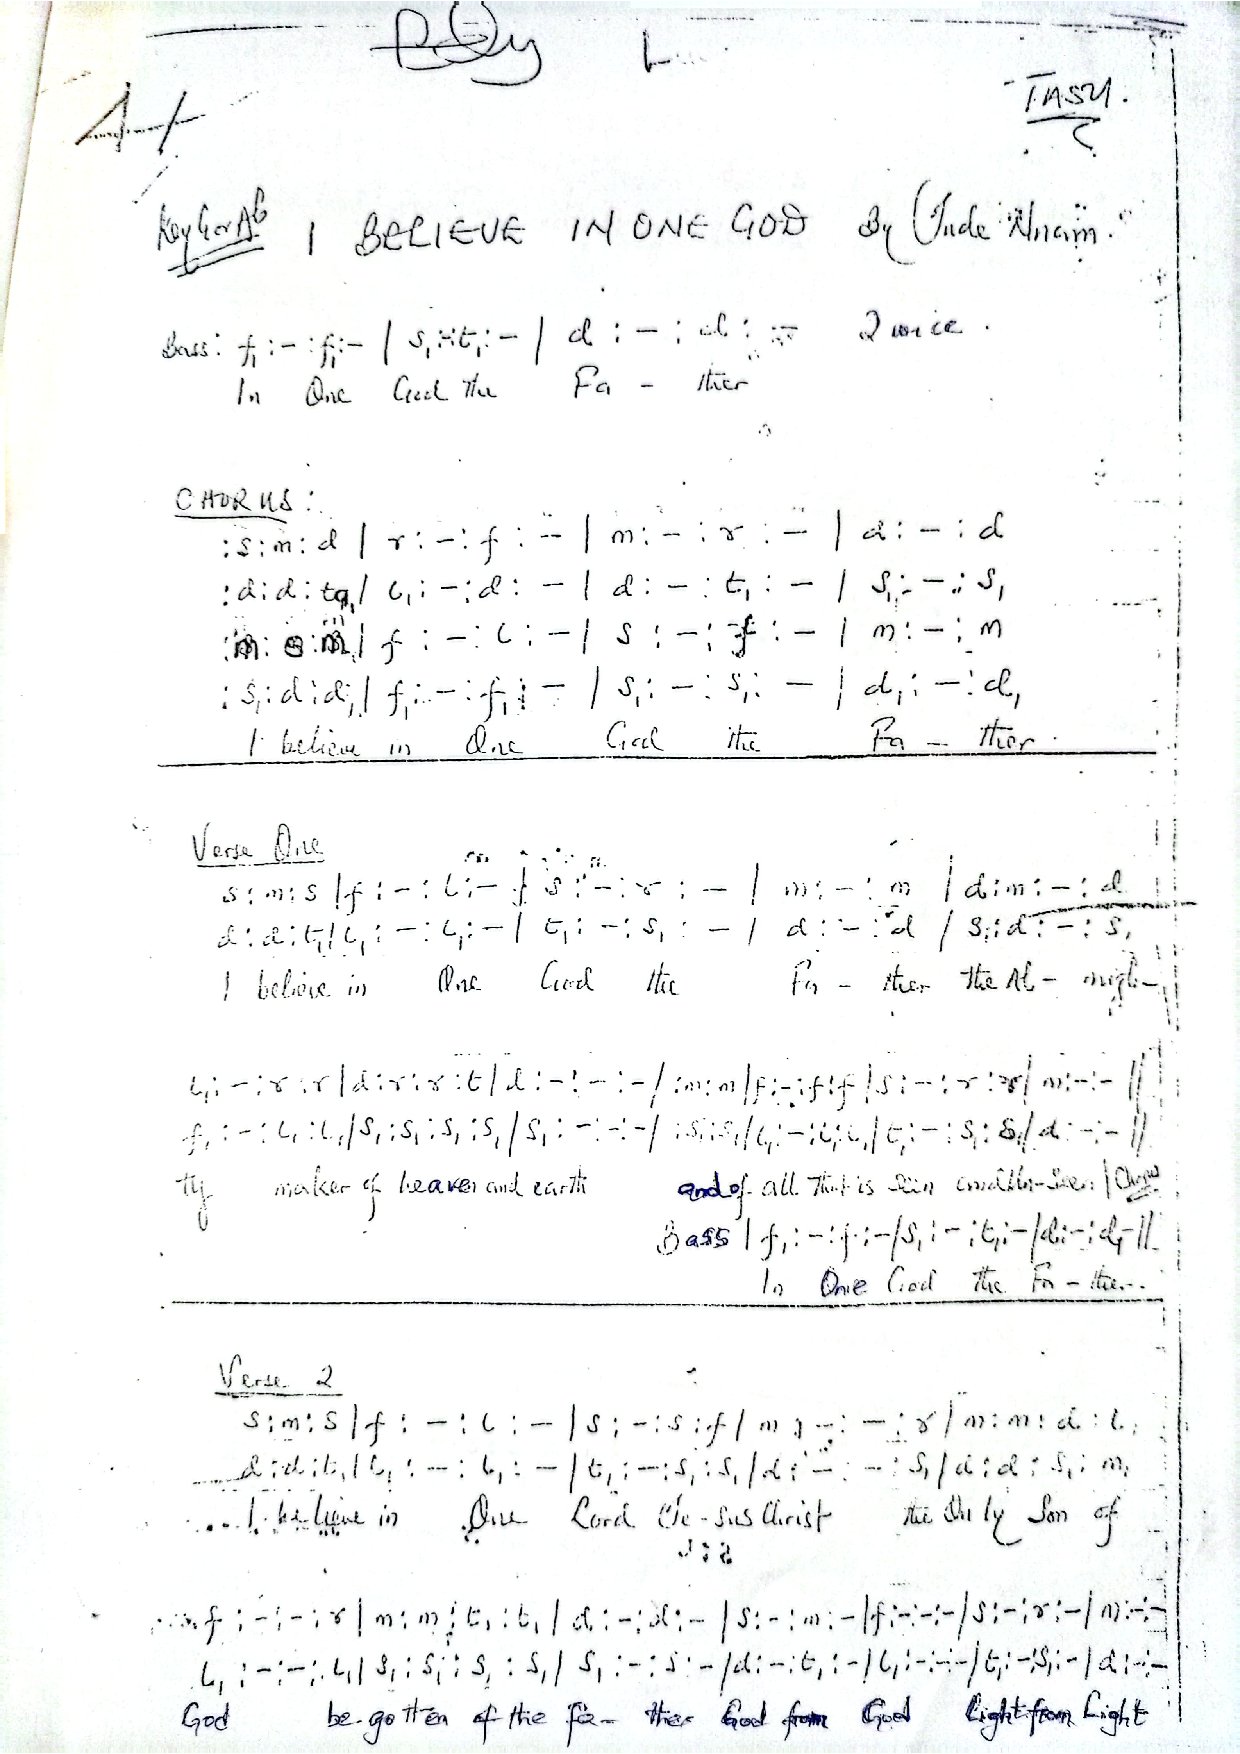 TASY.
Key G or Ab I BELIEVE IN ONE GOD By (Jude Nnam.
Bass: f₁ : – : f₁ : – | s₁ : – : t₁ : – | d : – : d : – 2wice.
In One God the Fa – ther
CHORUS:
: s : m : d | r : – : f : – | m : – : r : – | d : – : d
: d : d : ta₁ | l₁ : – : d : – | d : – : t₁ : – | s₁ : – : s₁
: m : s : m | f : – : l : – | s : – : f : – | m : – : m
: s₁ : d : d₁ | f₁ : – : f₁ : – | s₁ : – : s₁ : – | d₁ : – : d₁
I believe in One God the Fa – ther.
Verse One
s : m : s | f : – : l : – | s : – : r : – | m : – : m | d : m : – : d
d : d : t₁ | l₁ : – : l₁ : – | t₁ : – : s₁ : – | d : – : d | s₁ : d : – : s₁
I believe in One God the Fa – ther the Al – migh –
l₁ : – : r : r | d : r : r : t | d : – : – : – | : m : m | f : – : f : f | s : – : r : r | m : – : – ||
f₁ : – : l₁ : l₁ | s₁ : s₁ : s₁ : s₁ | s₁ : – : – : – | : s₁ : s₁ | l₁ : – : l₁ : l₁ | t₁ : – : s₁ : s₁ | d : – : – ||
ty maker of heaven and earth and of all that is seen and Un-seen | Chorus
Bass | f₁ : – : f₁ : – | s₁ : – : t₁ : – | d : – : d₁ – ||
In One God the Fa – ther..
Verse 2
s : m : s | f : – : l : – | s : – : s : f | m : – : – : r | m : m : d : l₁
d : d : t₁ | l₁ : – : l₁ : – | t₁ : – : s₁ : s₁ | d : – : – : s₁ | d : d : s₁ : m₁
I believe in One Lord Je-sus Christ the Only Son of
f : – : – : r | m : m : t₁ : t₁ | d : – : d : – | s : – : m : – | f : – : – : – | s : – : r : – | m : – : –
l₁ : – : – : l₁ | s₁ : s₁ : s₁ : s₁ | s₁ : – : s : – | d : – : t₁ : – | l₁ : – : – : – | t₁ : – : s₁ : – | d : – : –
God be-gotten of the fa- ther God from God Light from Light